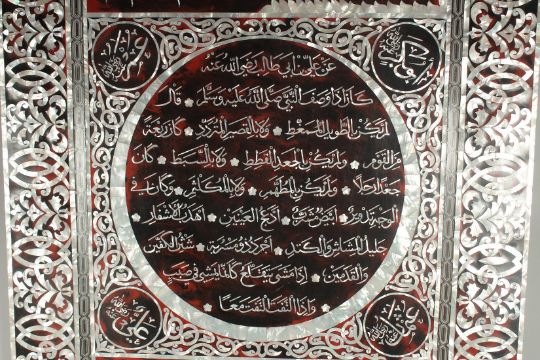 عن علي بن أبي طالب رضي الله عنه
كان إذا وصف النبي صلى الله عليه وسلم قال
لم يكن بالطويل الممغط ولا بالقصير المتردد كان ربعة
من القوم ولم يكن بالجعد القطط ولا بالسبط كان
جعدا رجلا ولم يكن بالمطهم ولا بالمكلثم وكان في
الوجه تدوير أبيض مشرب أدعج العينين أهدب الأشفار
جليل المشاش والكتد أجرد ذو مسربة شثن الكفين
والقدمين إذا مشى تقلع كأنما يمشي في صبب
وإذا التفت التفت معا